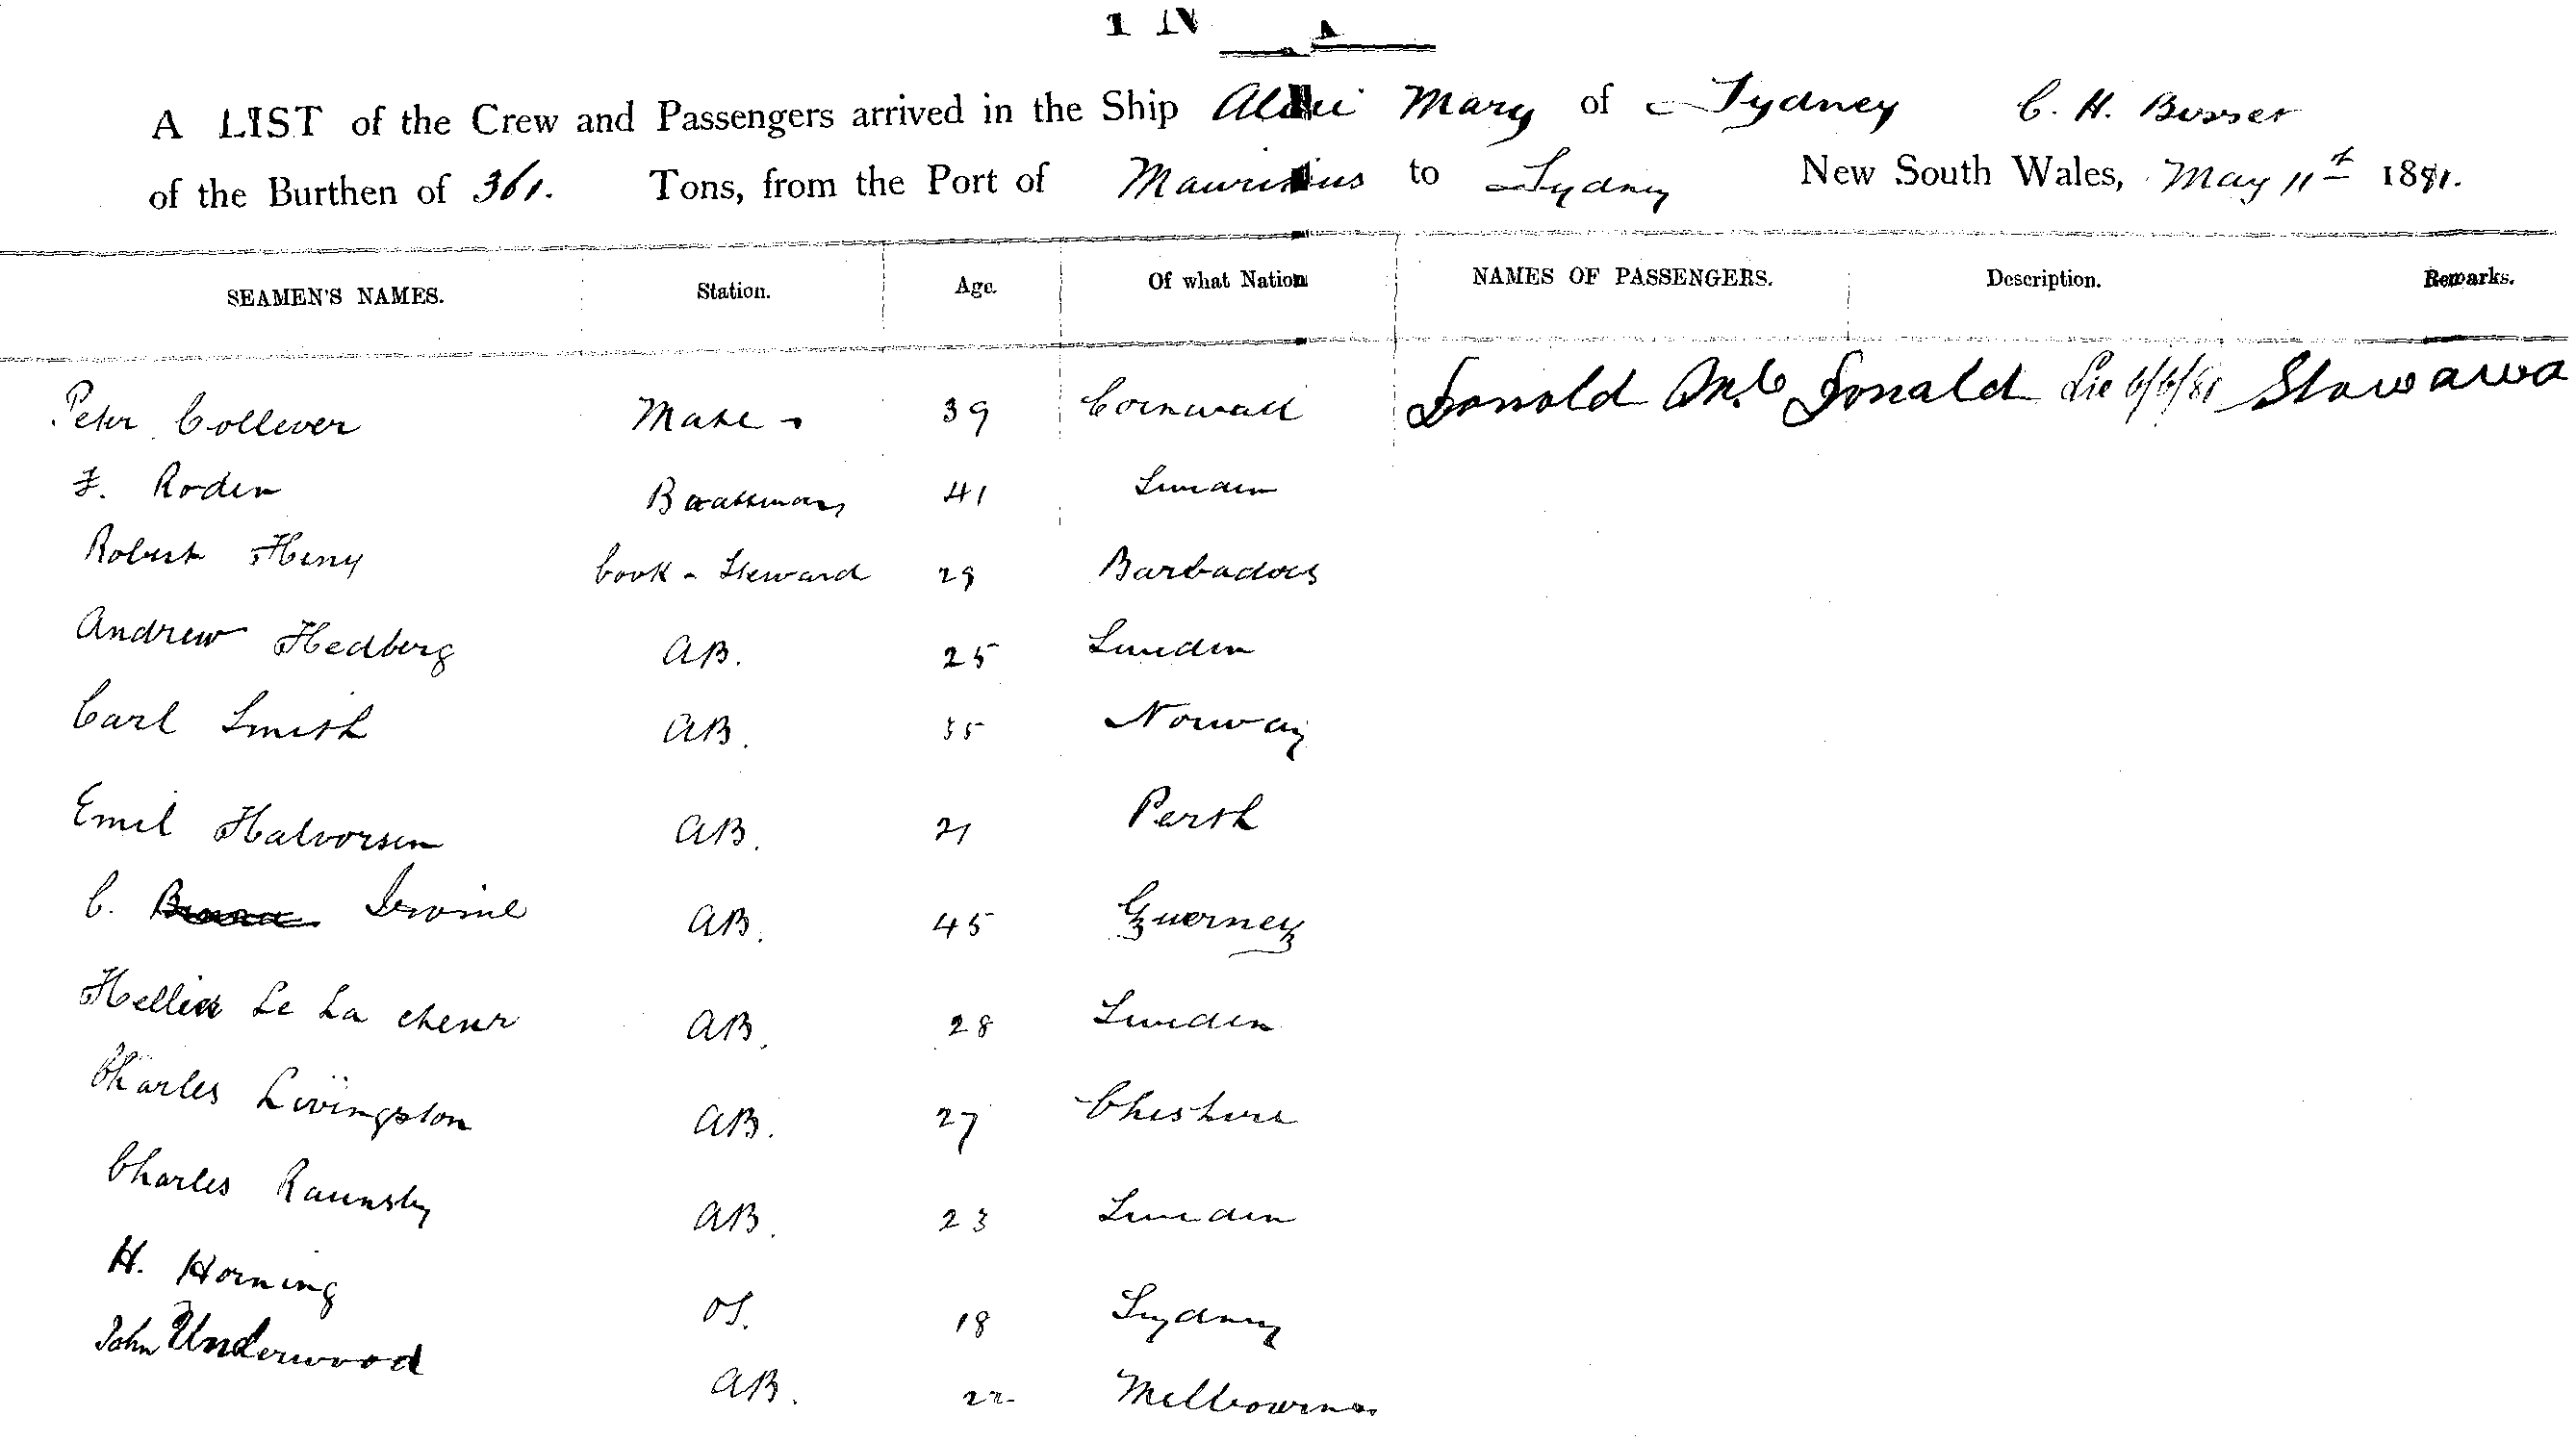 A LIST of the Crew and Passengers arrived in the Ship Mary of Sydney C. H. Bisset
of the Burthen of 361. Tons, from the Port of Mauritius to Sydney New South Wales, May 11th 1881.
SEAMEN'S NAMES. Station. Age. Of what Nation NAMES OF PASSENGERS. Description. Remarks.
Peter Collever Mate 39 Cornwall Donald McDonald 6/6/81 Stowawa
F. Roden Boatsman 41 Sweden
Robert Heny Cook - Steward 29 Barbadoes
Andrew Hedberg AB. 25 Sweden
Carl Smith AB. 35 Norway
Emil Halvorsen AB. 21 Perth
C. Irvine AB. 45 Guerney
Hellier Le La cheur AB. 28 Sweden
Charles Livingston AB. 27 Cheshire
Charles Raunsby AB. 23 Sweden
H. Horning OS. 18 Sydney
John Underwood AB. 22 Melbourne